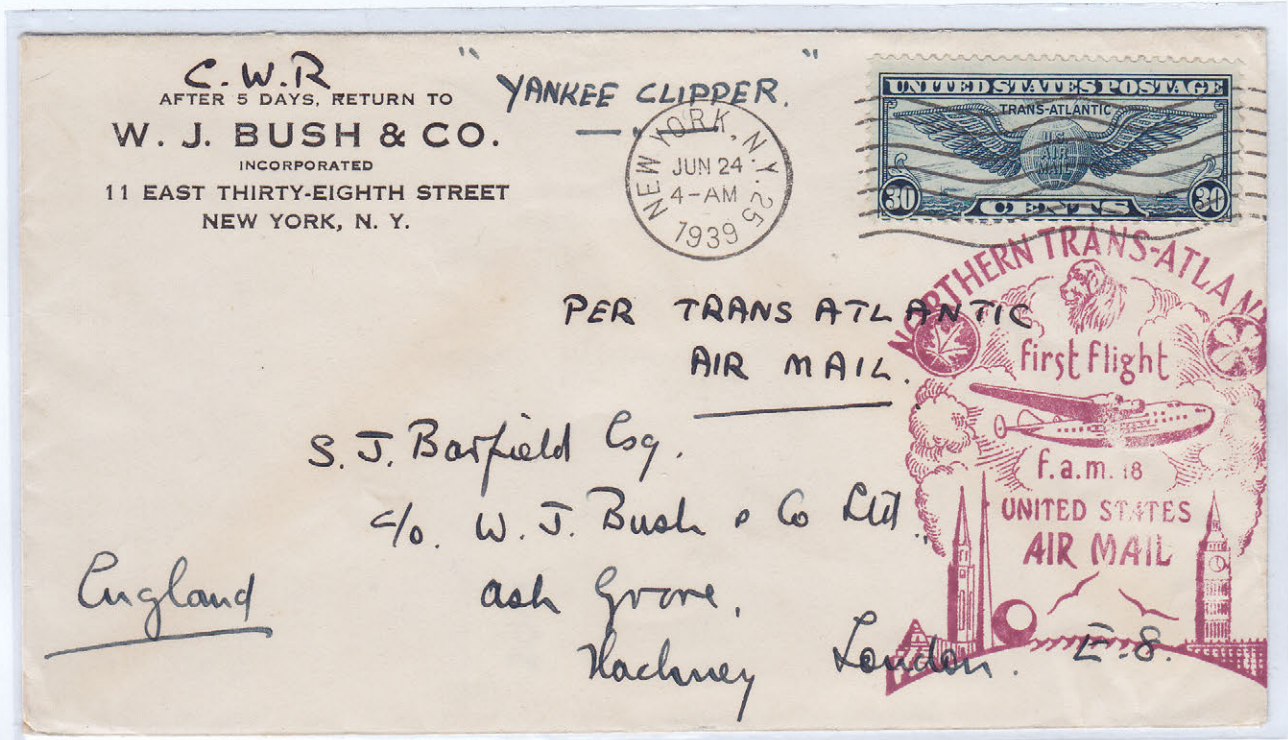 C.W.R
AFTER 5 DAYS, RETURN TO
W. J. BUSH & CO.
INCORPORATED
11 EAST THIRTY-EIGHTH STREET
NEW YORK, N. Y.
"YANKEE CLIPPER."
NEW YORK, N.Y. 25
JUN 24
4-AM
1939
UNITED STATES POSTAGE
TRANS-ATLANTIC
U.S.
AIR
MAIL
30 CENTS 30
NORTHERN TRANS-ATLANT
first flight
f.a.m. 18
UNITED STATES
AIR MAIL
PER TRANS ATLANTIC
AIR MAIL.
S. J. Barfield Esq.
c/o. W. J. Bush & Co Ltd.,
Ash Grove,
Hackney London. E.8.
England